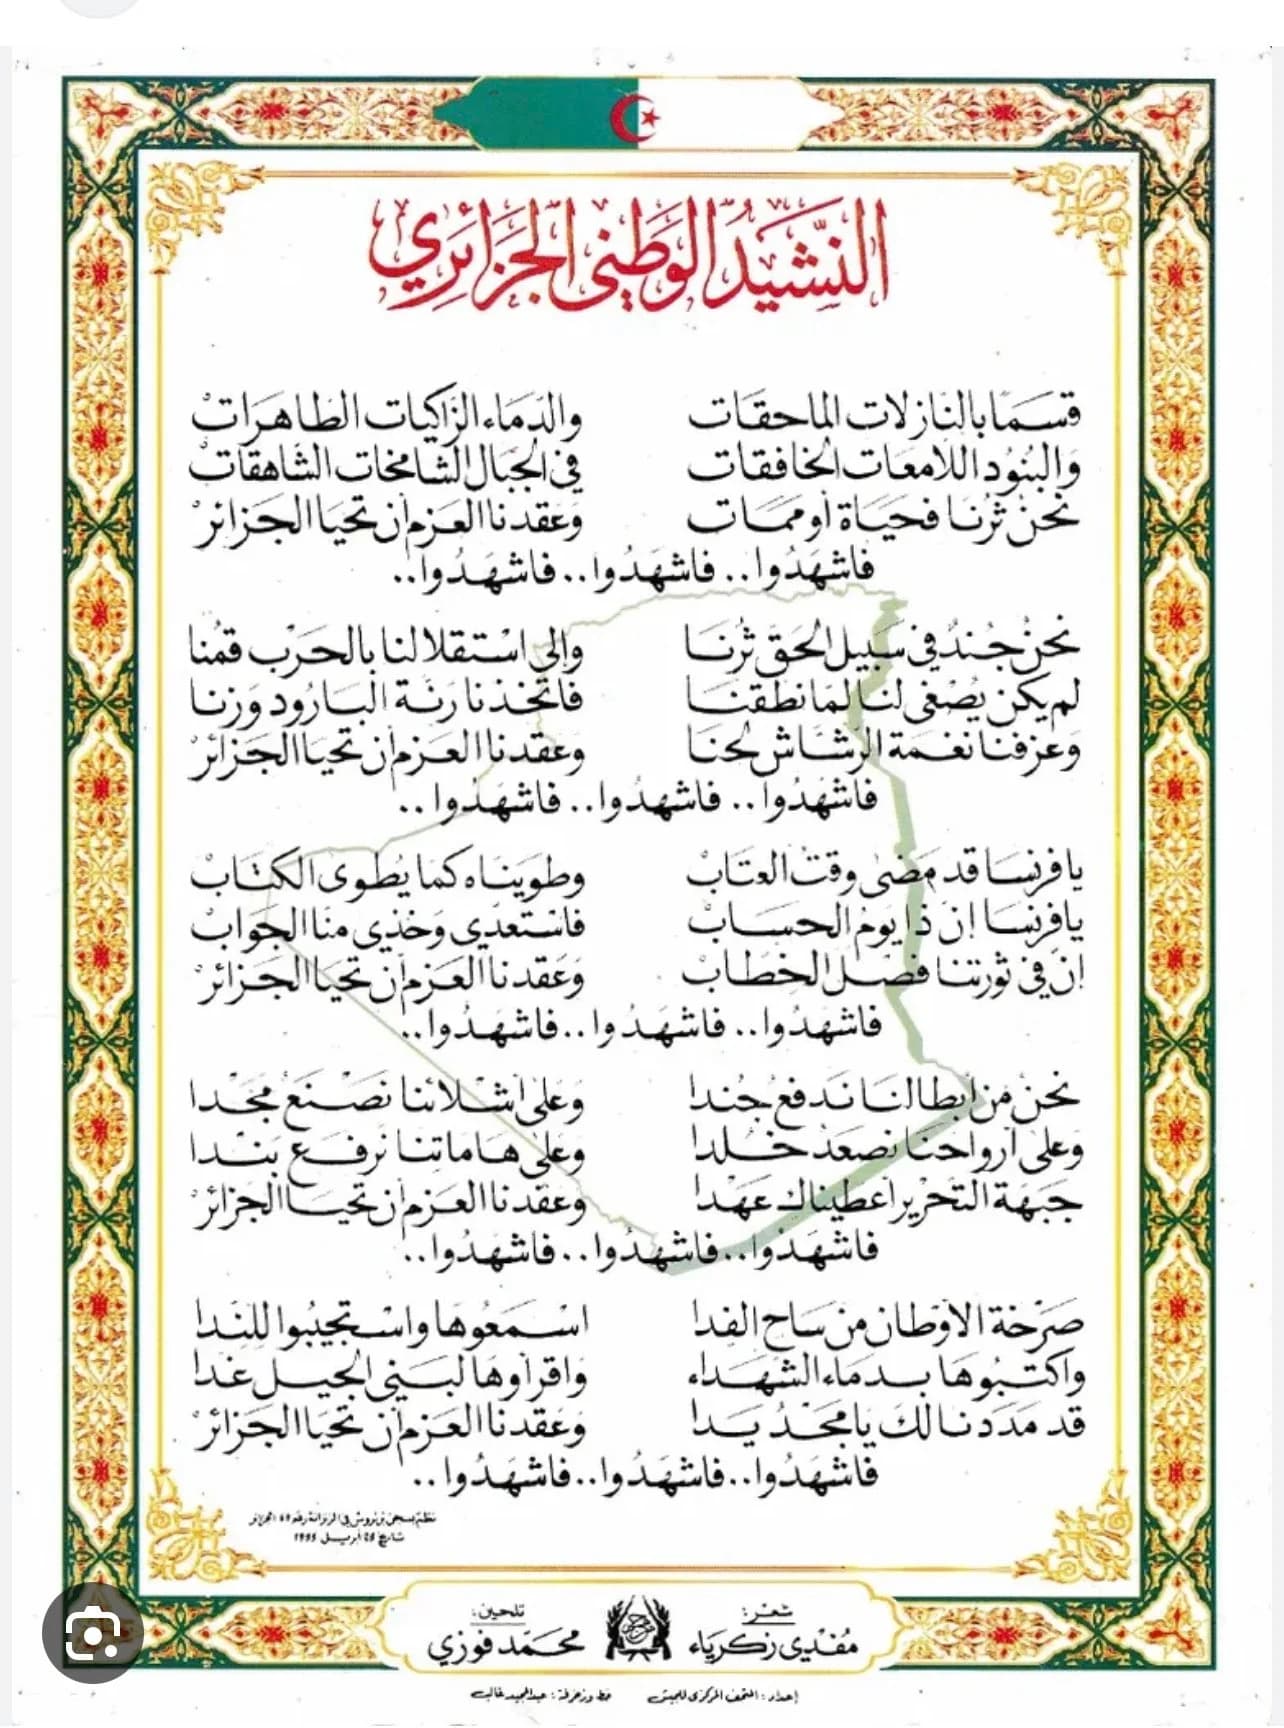 النَّشِيدُ الوَطَنِي الجَزَائِرِي
قسمًا بالنازلات الماحقات والدّماء الزّاكيات الطّاهرات
والبنود اللامعات الخافقات في الجبال الشامخات الشاهقات
نحن ثرنا فحياة أو ممات وعقدنا العزم أن تحيا الجزائر
فاشهدوا.. فاشهدوا.. فاشهدوا..
نحن جند في سبيل الحق ثرنا وإلى استقلالنا بالحرب قمنا
لم يكن يصغى لنا لما نطقنا فاتخذنا رنة البارود وزنا
وعزفنا نغمة الرشاش لحنا وعقدنا العزم أن تحيا الجزائر
فاشهدوا.. فاشهدوا.. فاشهدوا..
يا فرنسا قد مضى وقت العتاب وطويناه كما يطوى الكتاب
يا فرنسا إن ذا يوم الحساب فاستعدي وخذي منا الجواب
إن في ثورتنا فصل الخطاب وعقدنا العزم أن تحيا الجزائر
فاشهدوا.. فاشهدوا.. فاشهدوا..
نحن من أبطالنا ندفع جندا وعلى أشلائنا نصنع مجدا
وعلى أرواحنا نصعد خلدا وعلى هاماتنا نرفع بندا
جبهة التحرير أعطيناك عهدا وعقدنا العزم أن تحيا الجزائر
فاشهدوا.. فاشهدوا.. فاشهدوا..
صرخة الأوطان من ساح الفدا اسمعوها واستجيبوا للندا
واكتبوها بدماء الشهداء واقرأوها لبني الجيل غدا
قد مددنا لك يا مجد يدا وعقدنا العزم أن تحيا الجزائر
فاشهدوا.. فاشهدوا.. فاشهدوا..
نظم بسجن بربروس في الزنزانة رقم 69 الجزائر
بتاريخ 25 أبريل 1955
شعر: تلحين:
مُفْدِي زكرياء محمّد فوزي
إعداد: المتحف المركزي للجيش خط وزخرفة: عبدالمجيد غالب